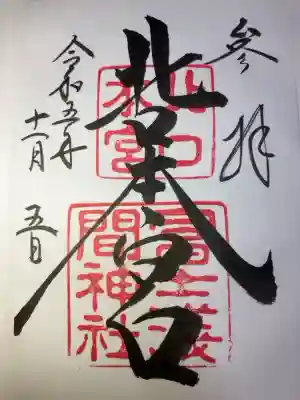 参拝
北口本宮
北口
本宮
冨士浅
間神社
令和五年
十一月
五日